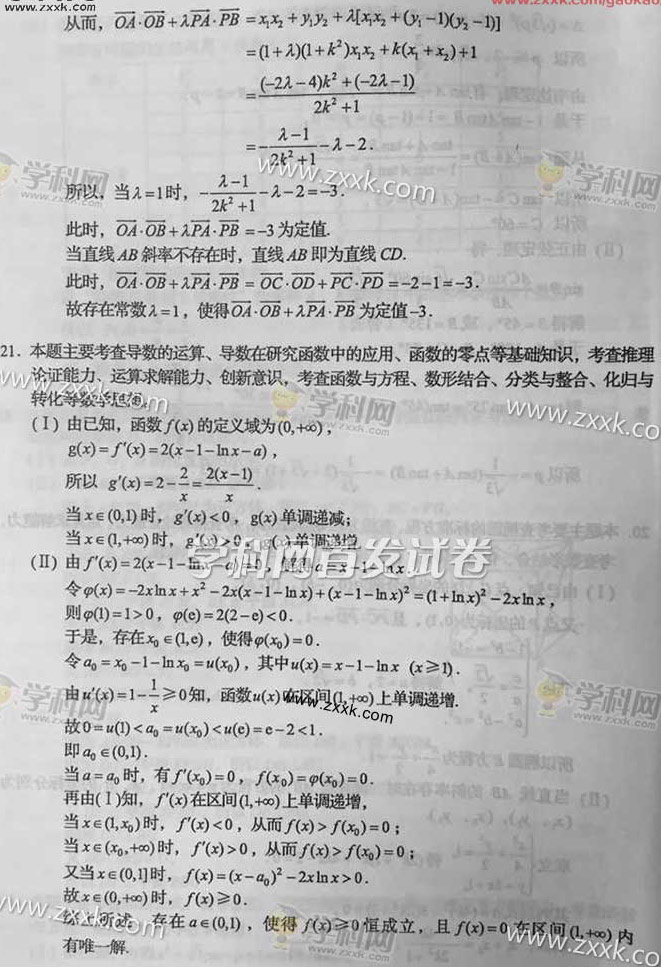 www.zxxk.com
www.zxxk.com/gaokao
从而，OA·OB+λPA·PB =x₁x₂+y₁y₂+λ[x₁x₂+(y₁-1)(y₂-1)]
=(1+λ)(1+k²)x₁x₂+k(x₁+x₂)+1
=((-2λ-4)k²+(-2λ-1))/(2k²+1)
=-(λ-1)/(2k²+1)-λ-2.
所以，当λ=1时，-(λ-1)/(2k²+1)-λ-2=-3.
此时，OA·OB+λPA·PB=-3为定值.
当直线AB斜率不存在时，直线AB即为直线CD.
此时，OA·OB+λPA·PB=OC·OD+PC·PD=-2-1=-3.
故存在常数λ=1，使得OA·OB+λPA·PB为定值-3.
21. 本题主要考查导数的运算、导数在研究函数中的应用、函数的零点等基础知识，考查推理
论证能力、运算求解能力、创新意识，考查函数与方程、数形结合、分类与整合、化归与
转化等数学思想.
(Ⅰ) 由已知，函数f(x)的定义域为(0,+∞)，
g(x)=f′(x)=2(x-1-lnx-a)，
所以 g′(x)=2-2/x=2(x-1)/x.
当x∈(0,1)时，g′(x)<0，g(x)单调递减；
当x∈(1,+∞)时，g′(x)>0，g(x)单调递增.
(Ⅱ) 由f′(x)=2(x-1-lnx-a)=0，解得a=x-1-lnx.
令φ(x)=-2xlnx+x²-2x(x-1-lnx)+(x-1-lnx)²=(1+lnx)²-2xlnx，
则φ(1)=1>0，φ(e)=2(2-e)<0.
于是，存在x₀∈(1,e)，使得φ(x₀)=0.
令a₀=x₀-1-lnx₀=u(x₀)，其中u(x)=x-1-lnx (x≥1).
由u′(x)=1-1/x≥0知，函数u(x)在区间(1,+∞)上单调递增.
故0=u(1)<a₀=u(x₀)<u(e)=e-2<1.
即a₀∈(0,1).
当a=a₀时，有f′(x₀)=0，f(x₀)=φ(x₀)=0.
再由(Ⅰ)知，f′(x)在区间(1,+∞)上单调递增，
当x∈(1,x₀)时，f′(x)<0，从而f(x)>f(x₀)=0；
当x∈(x₀,+∞)时，f′(x)>0，从而f(x)>f(x₀)=0；
又当x∈(0,1]时，f(x)=(x-a₀)²-2xlnx>0.
故x∈(0,+∞)时，f(x)≥0.
综上所述，存在a∈(0,1)，使得f(x)≥0恒成立，且f(x)=0在区间(1,+∞)内
有唯一解.
学科网首发试卷
学科网
www.zxxk.com